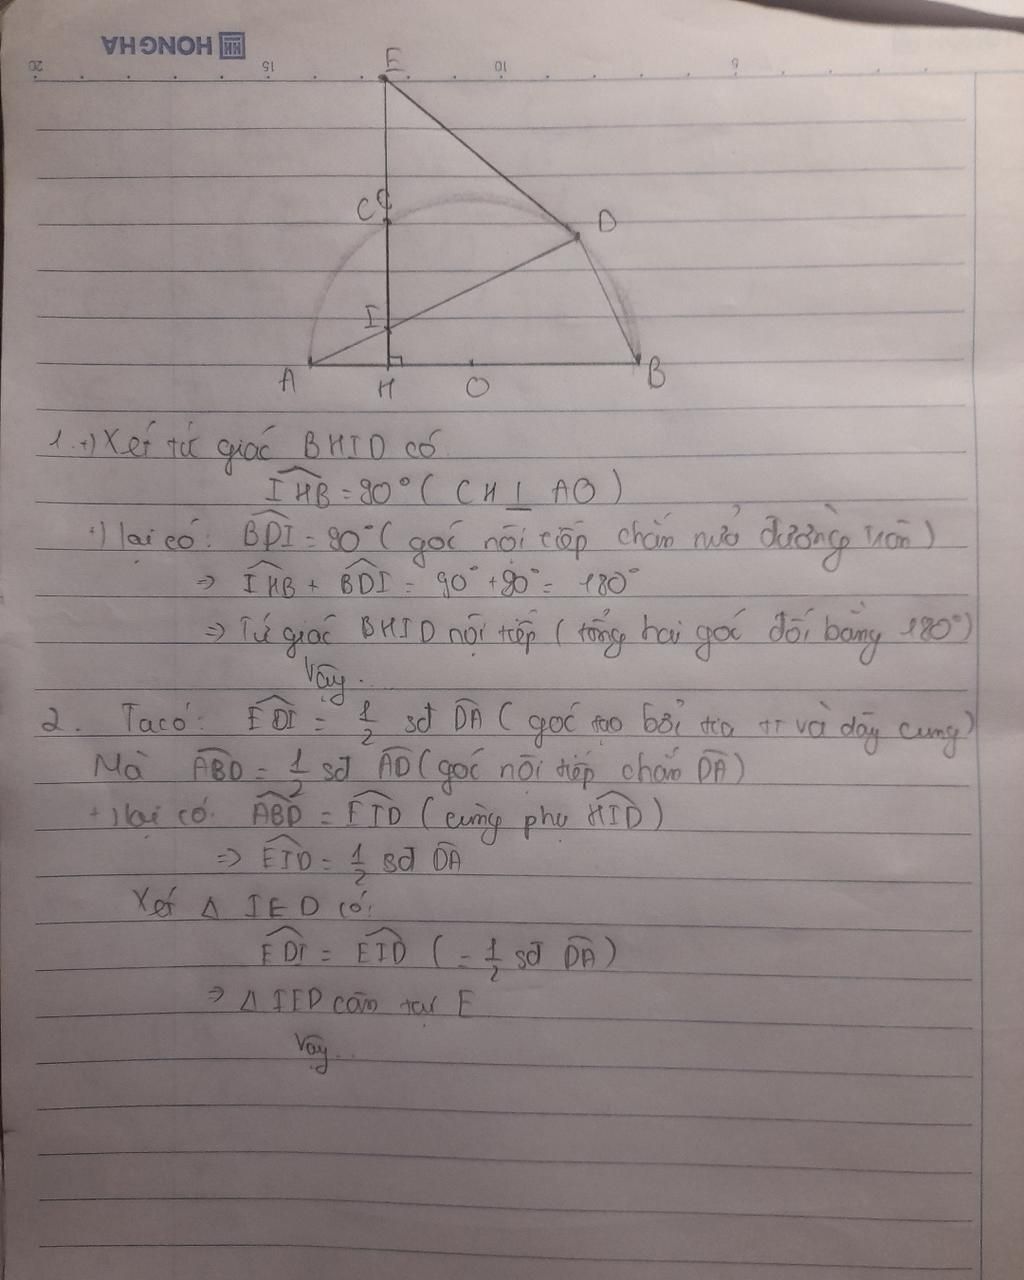 HONG HA
20 15 10 5
E
C
D
I
A H O B
1. +) Xét tứ giác BHID có
IHB = 90° ( CH ⊥ AO )
+) lại có: BDI = 90° ( góc nội tiếp chắn nửa đường tròn )
=> IHB + BDI = 90° + 90° = 180°
=> Tứ giác BHID nội tiếp ( tổng hai góc đối bằng 180° )
Vậy.
2. Ta có: EDI = 1/2 sđ DA ( góc tạo bởi tia tt và dây cung )
Mà ABD = 1/2 sđ AD ( góc nội tiếp chắn DA )
+) lại có: ABD = EID ( cùng phụ HID )
=> EID = 1/2 sđ DA
Xét Δ IED có:
EDI = EID ( = 1/2 sđ DA )
=> Δ IED cân tại E
Vậy...